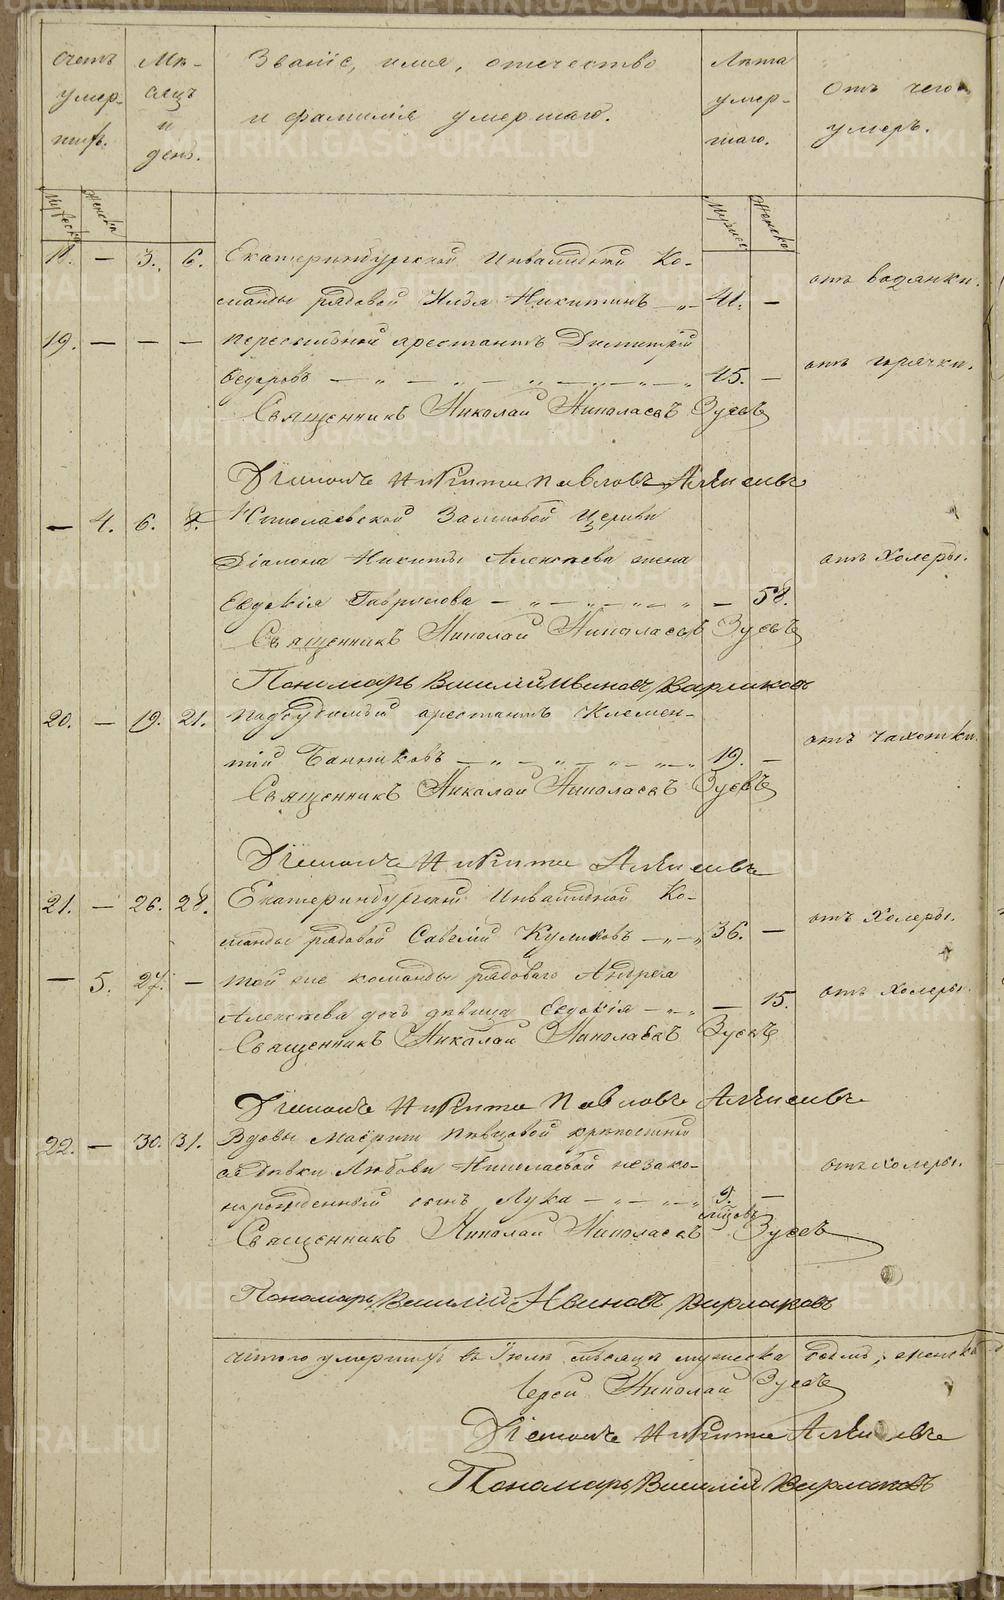 Счетъ умер- шихъ.
Мѣ- сяцъ и день.
Званіе, имя, отечество
и фамилія умершаго.
Лѣта умер- шаго.
Отъ чего умеръ.
Мужеска Женска
Мужес. Женска
18. — 3. 6. Екатеринбургской Инвалидной Ко-
манды рядовой Илья Никитинъ — 41. — отъ водянки.
19. — — — Пересыльный арестантъ Димитрій
Федоровъ — 45. — отъ горячки.
Священникъ Николай Николаевъ Зуевъ
Діаконъ Никита Павловъ Алексѣевъ
— 4. 6. 8. Николаевской Церкви
Діакона Никиты Алексѣева жена
Евдокія Гаврилова — — 58. отъ Холеры.
Священникъ Николай Николаевъ Зуевъ
Пономарь Василій Ивановъ Варлаковъ
20. — 19. 21. Подсудимый арестантъ Климен-
тій Банниковъ — 19. — отъ чахотки.
Священникъ Николай Николаевъ Зуевъ
Діаконъ Никита Алексѣевъ
21. — 26. 28. Екатеринбургской Инвалидной Ко-
манды рядовой Савелій Куликовъ — 36. — отъ Холеры.
— 5. 27. — Той же команды рядоваго Андрея
Алексѣева дочь дѣвица Евдокія — — 15. отъ Холеры.
Священникъ Николай Николаевъ Зуевъ
Діаконъ Никита Павловъ Алексѣевъ
22. — 30. 31. Вдовы Маіорши Пѣвцовой крѣпостной
дѣвки Любови Николаевой незако-
норожденный сынъ Лука — 9. мѣсяцовъ — отъ холеры.
Священникъ Николай Николаевъ Зуевъ
Пономарь Василій Ивановъ Варлаковъ
умершихъ въ Іюлѣ мѣсяцѣ мужеска женска
Іерей Николай Зуевъ
Діаконъ Никита Алексѣевъ
Пономарь Василій Варлаковъ
METRIKI.GASO-URAL.RU